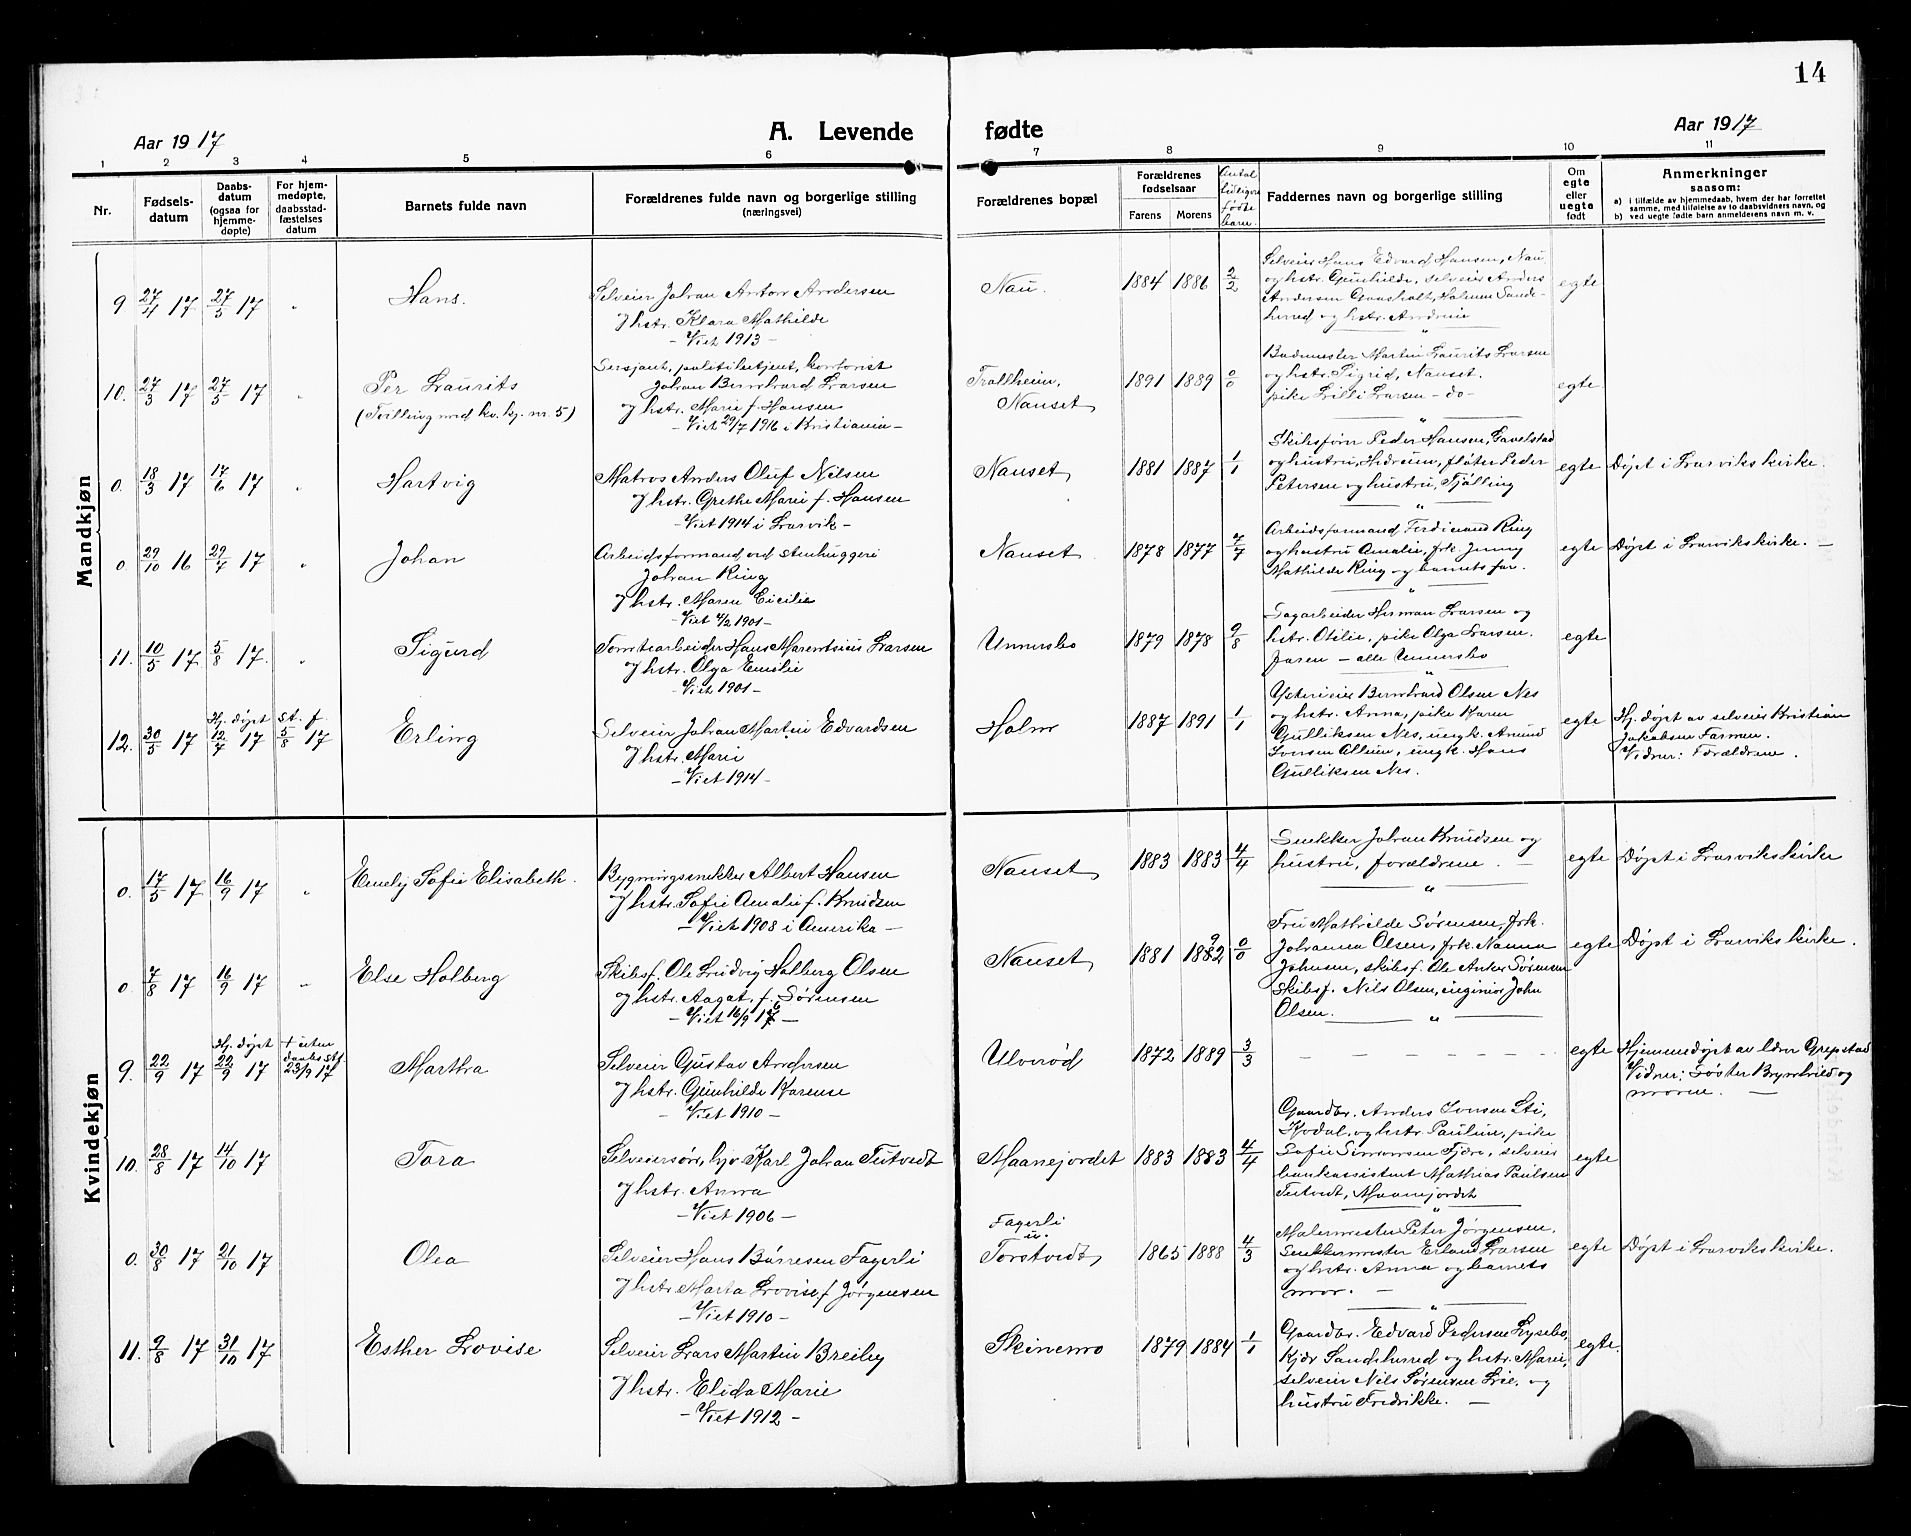 14
Aar 1917
A. Levende fødte
Aar 1917
1 2 3 4 5 6 7 8 9 10 11
Nr.
Fødsels-
datum
Daabs-
datum
(ogsaa for
hjemme-
døpte)
For hjem-
medøpte,
daabsstad-
fæstelses
datum
Barnets fulde navn
Forældrenes fulde navn og borgerlige stilling
(næringsvei)
Forældrenes bopæl
Forældrenes
fødselsaar
Farens Morens
Antal
tidligere
fødte
barn
Faddernes navn og borgerlige stilling
Om
egte
eller
uegte
født
Anmerkninger
saasom:
a) i tilfælde av hjemmedaab, hvem der har forrettet
samme, med tilføielse av to daabsvidners navn, og
b) ved uegte fødte barn anmelderens navn m. v.
Mandkjøn
9 27/4 17 27/5 17 " Hans.
Selveier Johan Anton Andersen
og hstr. Klara Mathilde
- Viet 1913 -
Nau. 1884 1886 2/2
Selveier Hans Edvard Hansen, Nau
og hstr. Gunhilde, selveier Anders
Andersen Gaasholt, Holmen Sande-
herred og hstr. Andrine
egte
10. 27/3 17 27/5 17 " Per Laurits
(Tvilling med kv. kj. nr. 5)
Sersjant, politibetjent, kontorist
Johan Bernhard Larsen
og hstr. Marie f. Hansen
- Viet 29/7 1916 i Kristiania -
Trollheim,
Nanset 1891 1889 0/0
Bademester Martin Laurits Larsen
og hstr. Sigrid, Nanset.
pike Lilli Larsen - do -
egte
0. 18/3 17 17/6 17 " Hartvig
Matros Anders Oluf Nilsen
og hstr. Grethe Marie f. Hansen
- Viet 1914 i Larvik -
Nanset 1881 1887 1/1
Skibsfører Peder Hansen, Gavelstad
og hustru, fløter Peder
Petersen og hustru, Tjølling
egte Døpt i Larviks kirke.
0. 29/10 16 29/4 17 " Johan
Arbeidsformand ved stenhuggeri
Johan Ring
og hstr. Maren Cicilie
- Viet 4/2 1901 -
Nanset 1878 1877 7/7
Arbeidsformand Ferdinand Ring
og hustru Amalie, frk. Jenny
Mathilde Ring og barnets far.
egte Døpt i Larviks kirke. -
11. 10/5 17 5/8 17. " Sigurd
Tomtearbeider Hans Marentsius Larsen
og hstr. Olga Emilie
- Viet 1901 -
Unnersbo 1879 1878 9/8
Sagarbeider Herman Larsen og
hstr. Otilie, pike Olga Larsen.
faren - alle Unnersbo
egte
12. 30/5 17 Hj. døpt 12/7 17 st. f. 5/8 17 Erling
Selveier Johan Martin Edvardsen
og hstr. Marie
- Viet 1914 -
Holm 1887 1891 1/1
Bernhard Olsen Nes
og hstr. Anna, pike Karen
Gulliksen Nes, ungk. Amund
Jonsen Allum, ungk. Hans
Gulliksen Nes.
egte Hj. døpt av selveier Kristian
Jakobsen Farmen.
Vidner: Forældrene.
Kvindekjøn
0. 17/5 17 16/9 17 " Emely Sofie Elisabeth.
Bygningssnekker Albert Hansen
og hstr. Sofie Amalie f. Knudsen
- Viet 1908 i Amerika -
Nanset 1883 1883 4/4
Snekker Johan Knudsen og
hustru, forældrene. -
egte Døpt i Larviks kirke
0. 7/8 17 16/9 17 " Else Holberg
Skibsf. Ole Ludvig Holberg Olsen
og hstr. Aagot f. Sørensen
- Viet 16/9 16 -
Nanset 1881 1892 0/0
Fru Mathilde Sørensen, frk.
Johanna Olsen, frk. Nanna
Johnsen, skibsf. Ole Anker Sørensen
Skibsf. Nils Olsen, ingeniør John
Olsen.
egte Døpt i Larviks kirke.
9. 22/9 17 Hj. døpt 22/9 17 + uten
daabs stf.
23/9 17 Martha
Selveier Gustav Andersen
og hstr. Gunhilde Karense
- Viet 1910 -
Ulverød 1872 1889 3/3
- - - - - -
egte Hjemmedøpt av lærer Grepstad
Vidner: Søster Brynhild og
moren. -
10. 28/8 17 14/10 17 Tora
Selveiersøn, hjv Karl Johan Tutvedt
og hstr. Anna
- Viet 1906 -
Maanejordet 1883 1883 4/4
Gaardbr. Anders Jonsen Sti,
Kodal, og hstr. Pauline, pike
Sofie Simonsen Fjære, selveier
bankassistent Mathias Paulsen
Tutvedt, Maanejordet
egte
0. 30/8 17 21/10 17 Olea
Selveier Hans Børresen Fagerli
og hstr. Marta Lovise f. Jørgensen
- Viet 1910 -
Fagerli
u.
Torstvedt 1865 1888 4/3
Malermester Peter Jørgensen.
Snekkermester Erland Larsen
og hstr. Anna og barnets
mor. -
egte Døpt i Larviks kirke.
11. 9/8 17 31/10 17 Esther Lovise
Selveier Lars Martin Breiby
og hstr. Elida Marie
- Viet 1912 -
Skinmo 1879 1884 1/1
Gaardbr. Edvard Pedersen Lysebo,
Kjær Sandeherred og hstr. Marie,
selveier Nils Sørensen Lie, og
hustru Fredrikke. -
egte.